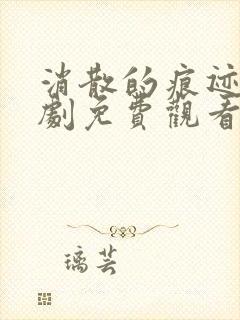 消散的痕迹
劇免費觀看
璃芸